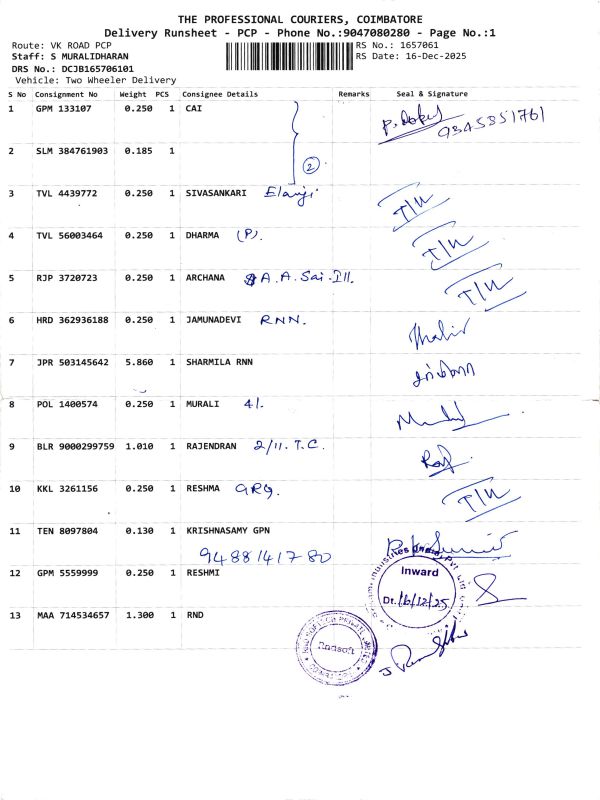 THE PROFESSIONAL COURIERS, COIMBATORE
Delivery Runsheet - PCP - Phone No.:9047080280 - Page No.:1
Route: VK ROAD PCP
RS No.: 1657061
Staff: S MURALIDHARAN
RS Date: 16-Dec-2025
DRS No.: DCJB165706101
Vehicle: Two Wheeler Delivery
S No Consignment No Weight PCS Consignee Details Remarks Seal & Signature
1 GPM 133107 0.250 1 CAI 9345351761
2 SLM 384761903 0.185 1 2
3 TVL 4439772 0.250 1 SIVASANKARI Elanji T/W
4 TVL 56003464 0.250 1 DHARMA (P). T/W
5 RJP 3720723 0.250 1 ARCHANA A.A. Sai. III. T/W
6 HRD 362936188 0.250 1 JAMUNADEVI RNN.
7 JPR 503145642 5.860 1 SHARMILA RNN
8 POL 1400574 0.250 1 MURALI 4/.
9 BLR 9000299759 1.010 1 RAJENDRAN 2/11. T.C.
10 KKL 3261156 0.250 1 RESHMA GRG. T/W
11 TEN 8097804 0.130 1 KRISHNASAMY GPN
9488141780
12 GPM 5559999 0.250 1 RESHMI
Inward
Dt. 16/12/25
13 MAA 714534657 1.300 1 RND
Rndsoft